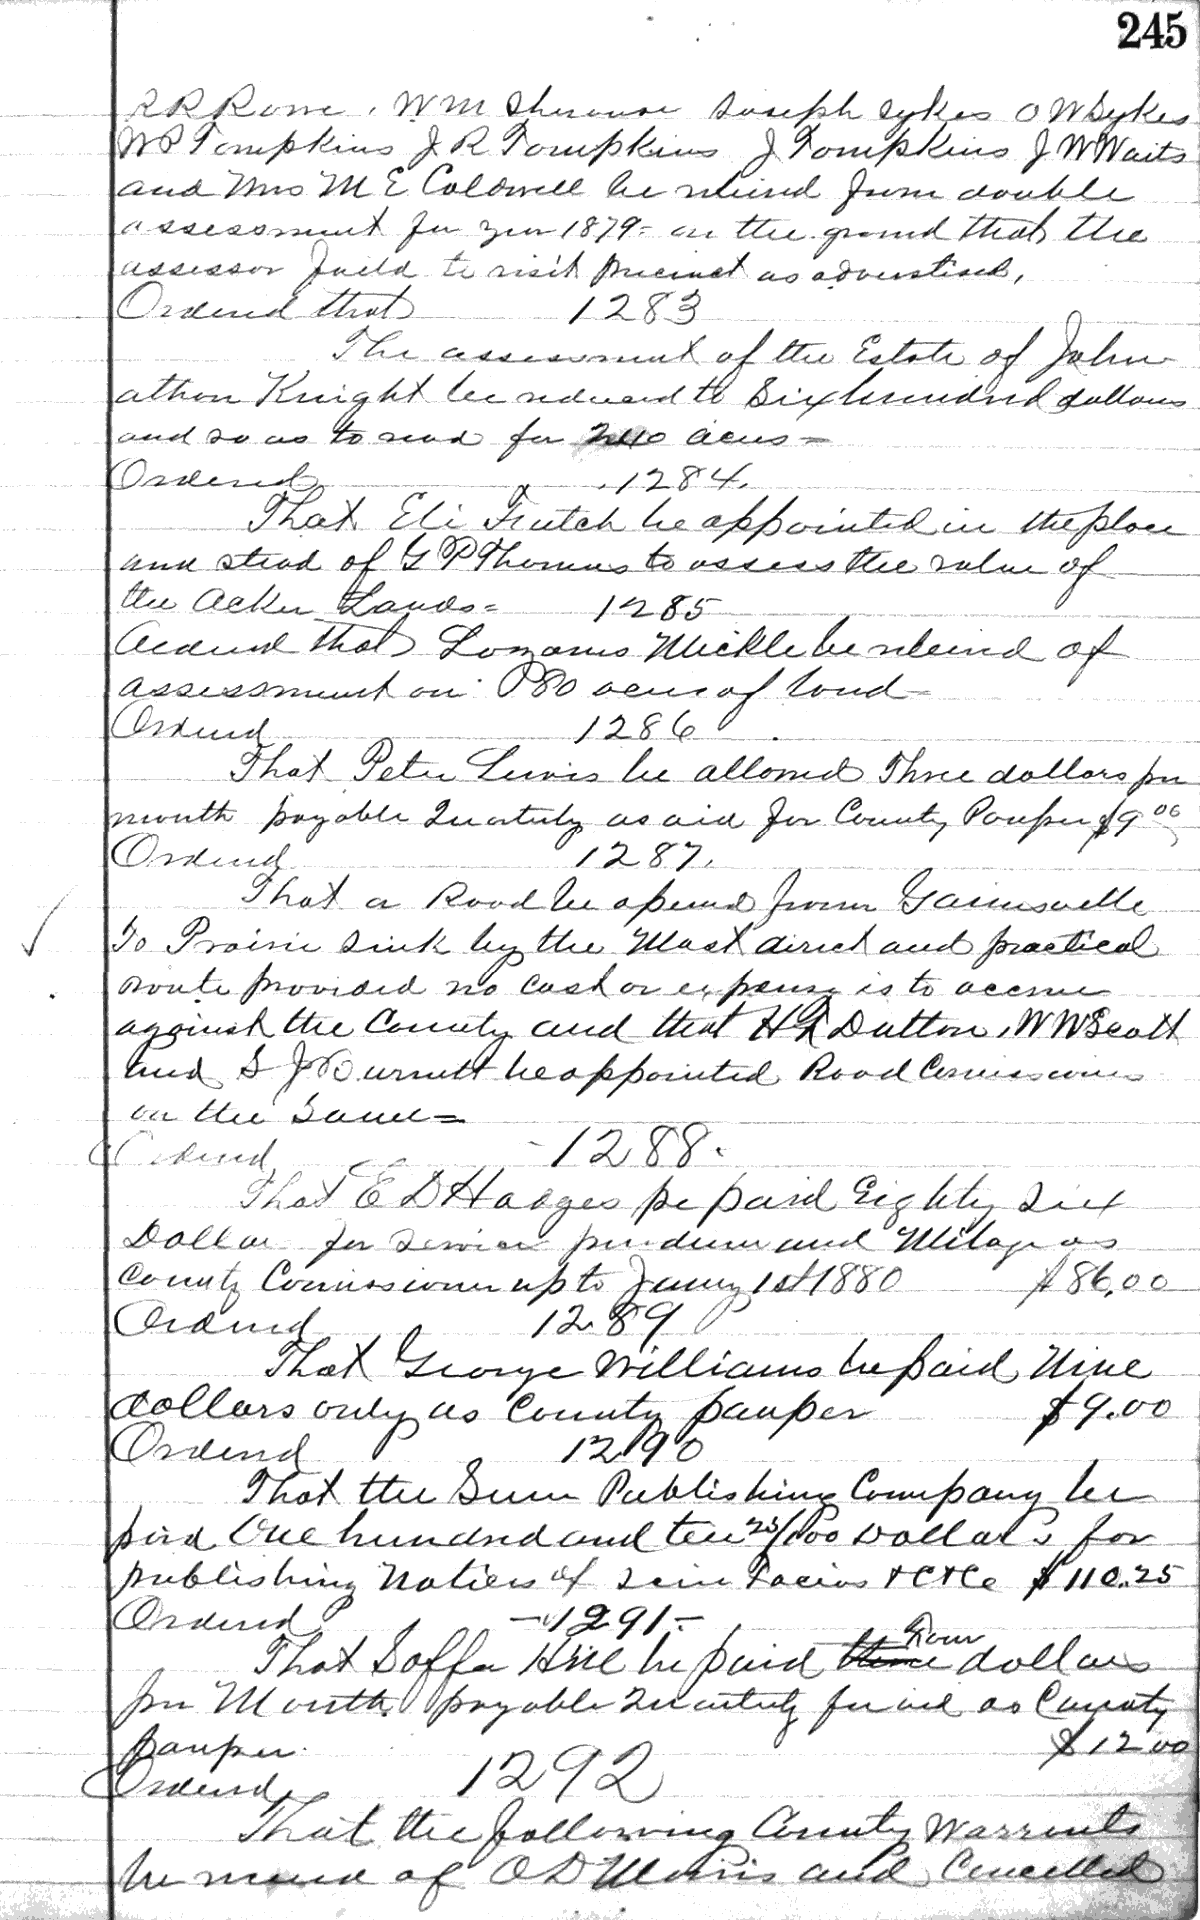 245
R R Rowe, W M Sherouse Joseph Sykes O W Sykes
W R Tompkins J R Tompkins J Tompkins J W Waits
and Mrs M E Coldwell be relieved from double
assessment for year 1879 = on the ground that the
assessor faild to visit precinct as advertised,
Ordered that 1283
The assessment of the Estate of John
athon Knight be reduced to Six hundred dollars
and so as to read for 240 acres =
Ordered 1284.
That Eli Futch be appointed in the place
and stead of G P Thomas to assess the value of
the Acker Lands = 1285
Ordered that Lozarus Mickle be relieved of
assessment on 80 acres of land
Ordered 1286
That Peter Lewis be allowed Three dollars per
month payable Quarterly as aid for County Pauper $9 00
Ordered 1287.
That a Road be opened from Gainesville
To Prairie Sink by the Most direct and practical
route provided no cost or expense is to accrue
against the County and that H F Dutton, W W Scott
and S J Burnett be appointed Road Comissioners
on the Same =
Ordered 1288.
That E D Hodges be paid Eighty Six
Dollars for service perdiem and Milage as
County Comissioner up to Janry 1st 1880 $86.00
Ordered 1289
That George Williams be paid Nine
dollars only as County pauper $9.00
Ordered 1290
That the Sun Publishing Company be
paid One hundred and ten 25/100 Dollars for
publishing Notices of Scire Facias &C &Cc $110.25
Ordered - 1291 -
That Soffa Hill be paid three Four dollars
per Month payable Quarterly for aid as County
pauper $12 00
Ordered 1292
That the following County Warrents
be received of O D Morris and Cancelled